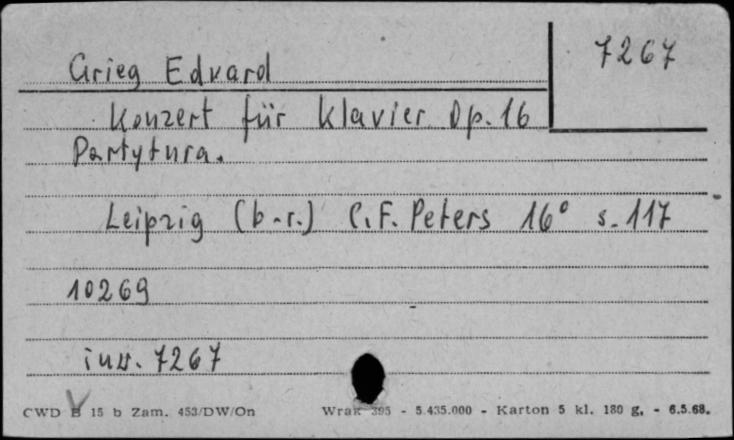 7267
Grieg Edvard
Konzert für Klavier Op. 16
Partytura.
Leipzig (b.r.) C.F. Peters 16° s. 117
10269
inw. 7267
CWD B 15 b Zam. 453/DW/On Wrak 395 - 5.435.000 - Karton 5 kl. 180 g. - 6.5.68.